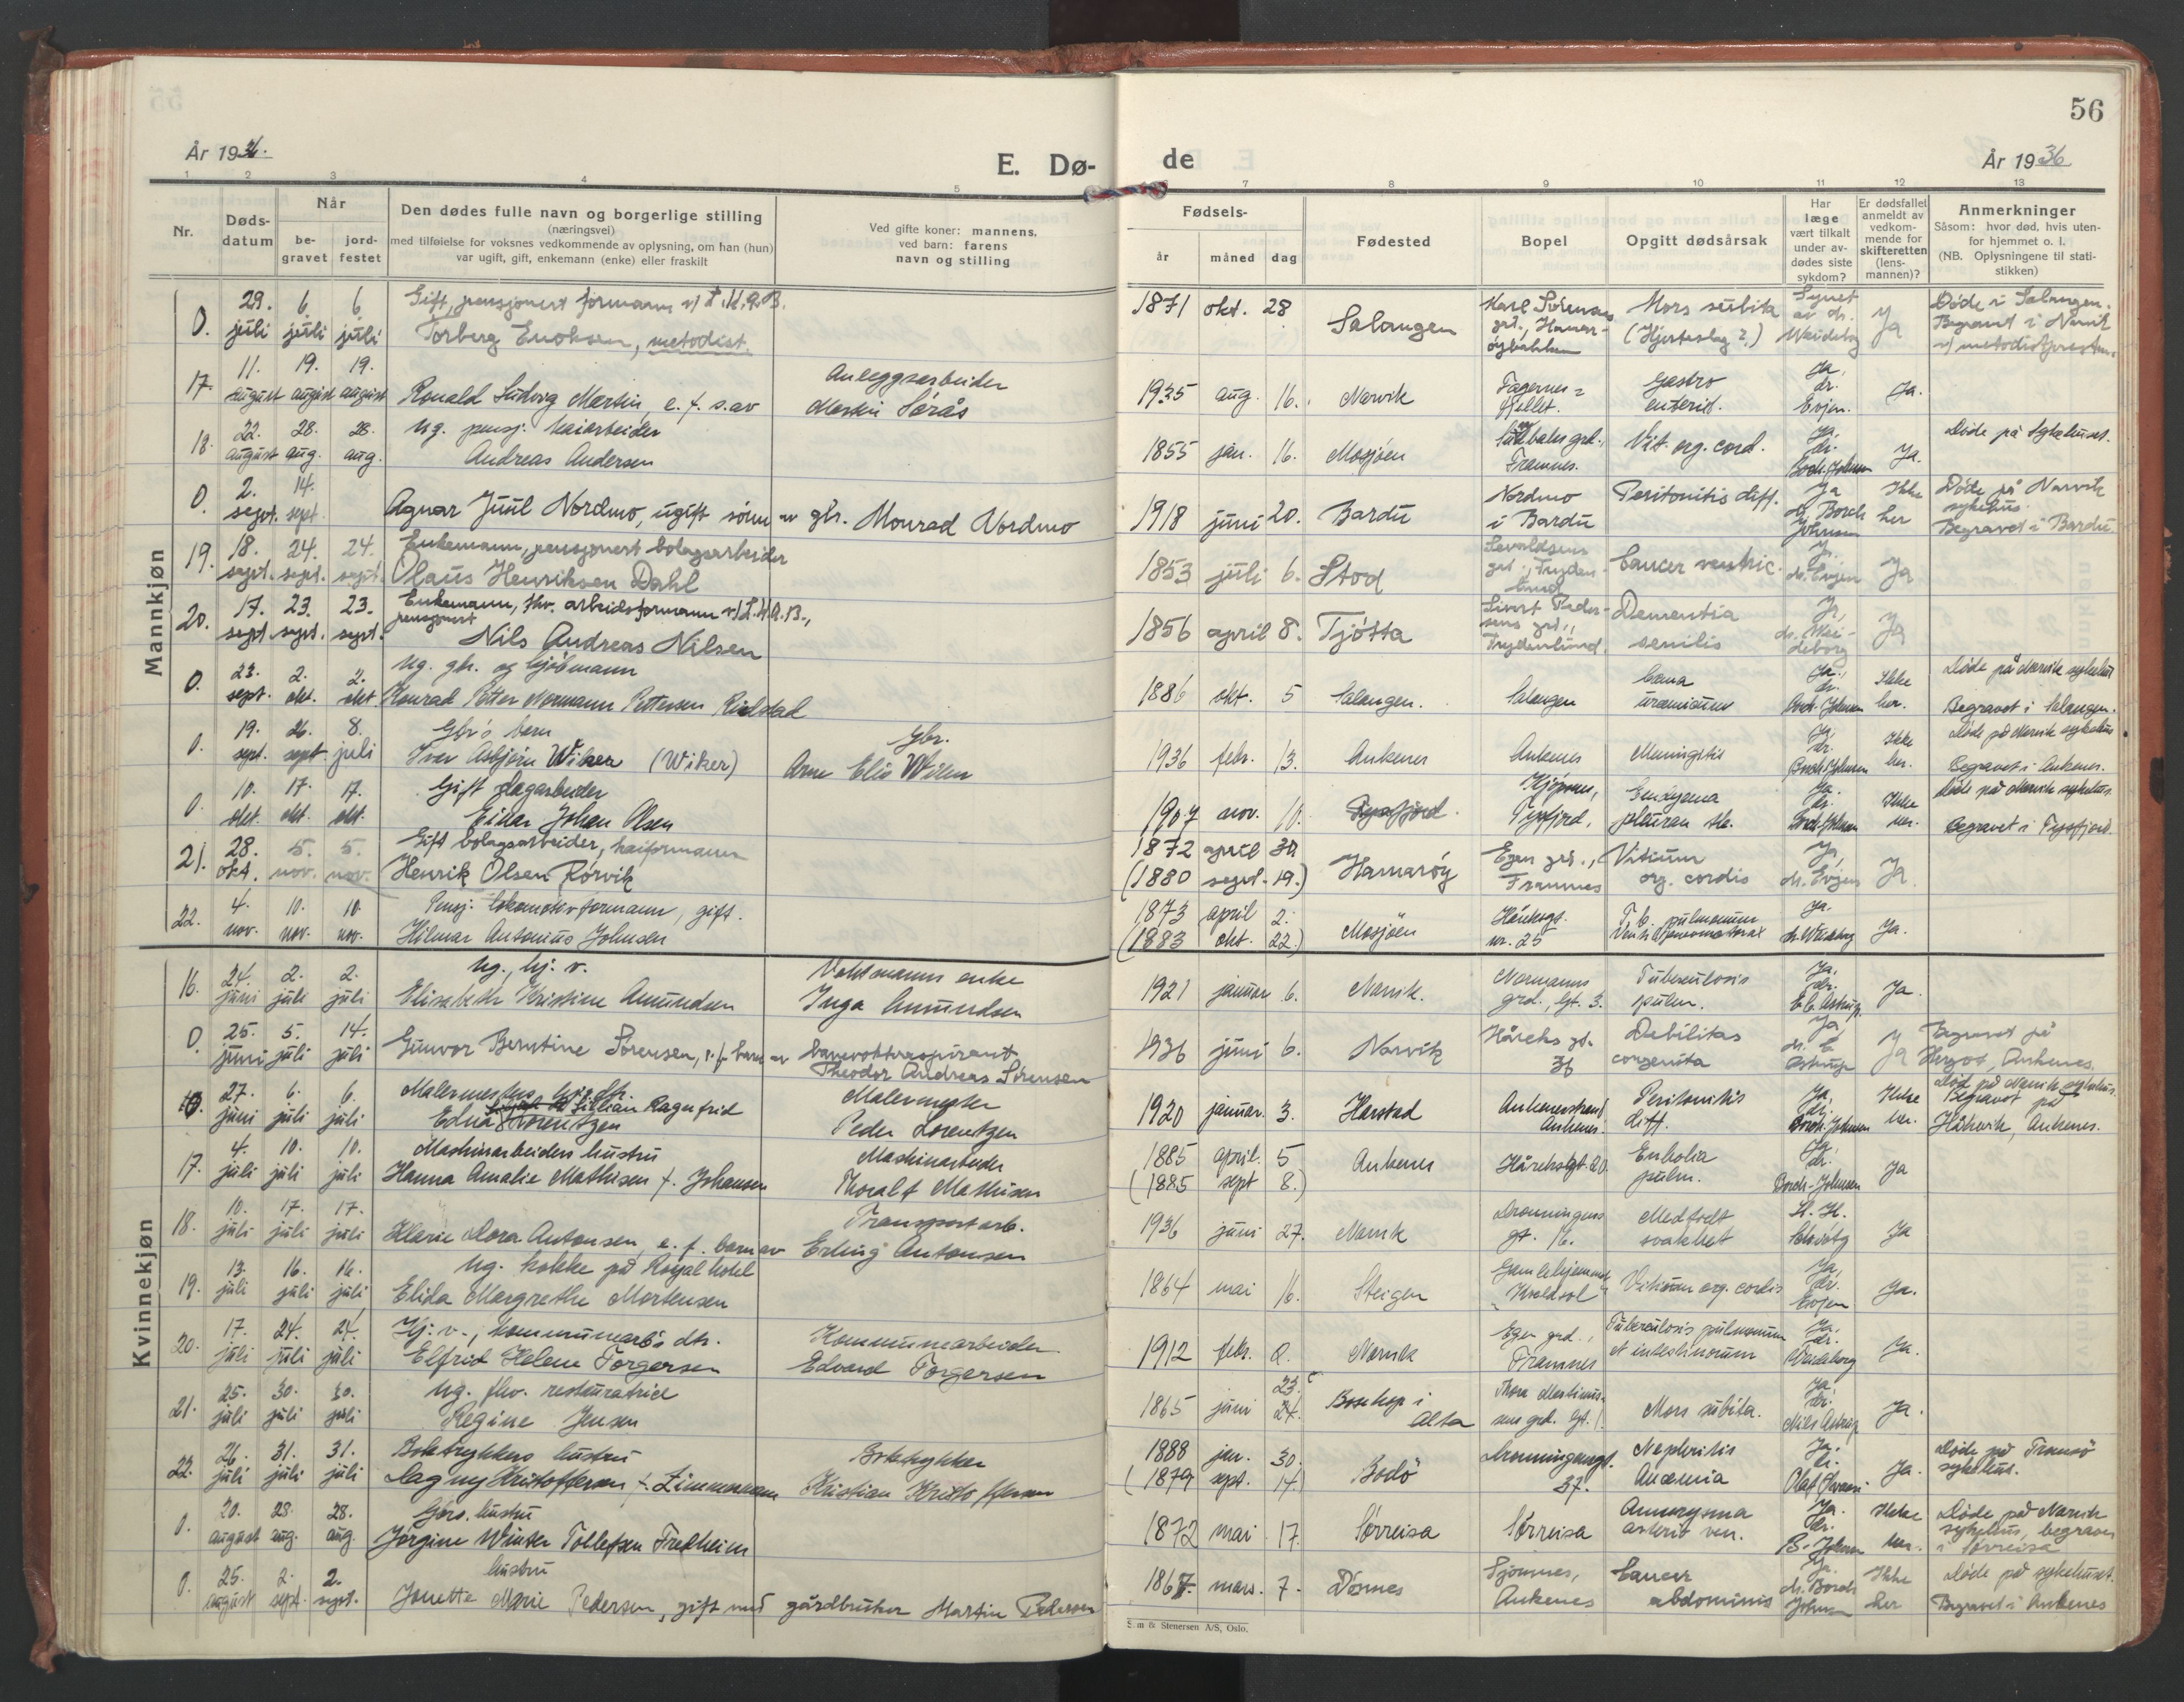 56
År 1936.
E. Dø-
de
År 1936
1 2 3 4 5 6 7 8 9 10 11 12 13
Nr.
Døds-
datum
Når
be-
gravet
jord-
festet
Den dødes fulle navn og borgerlige stilling
(næringsvei)
med tilføielse for voksnes vedkommende av oplysning, om han (hun)
var ugift, gift, enkemann (enke) eller fraskilt
Ved gifte koner: mannens.
ved barn: farens
navn og stilling
Fødsels-
år
måned
dag
Fødested
Bopel
Opgitt dødsårsak
Har
læge
vært tilkalt
under av-
dødes siste
sykdom?
Er dødsfallet
anmeldt av
vedkom-
mende for
skifteretten
(lens-
mannen)?
Anmerkninger
Såsom: hvor død, hvis uten-
for hjemmet o. l.
(NB. Oplysningene til stati-
stikken)
Mannkjøn
0. 29. juli 6. juli 6. juli
Gift, pensjonert formann v/
Torberg Enoksen, metodist.
1871 okt. 28 Salangen
Mors subita
(Hjerteslag?)
Ja
Døde i Salangen.
Begravet i Narvik
17. 11. august 19. august 19. august
Ronald Ludvig Martin, e. f. s. av
Anleggsarbeider
Martin Sørås
1935 aug. 16. Narvik
Fagernes=
fjellet.
Gastro
enterit.
Ja, dr. Evjen. Ja.
18. 22. august 28. aug. 28. aug.
Ug. pensj. kaiarbeider
Andreas Andersen
1855 jan. 16. Mosjøen
Framnes.
Vit. org. cord.
Ja, dr. Borch-Johnsen Ja.
Døde på sykehuset.
0. 2. sept. 14. sept.
Agnar Juul Nordmo, ugift sønn av gbr. Monrad Nordmo
1918 juni 20. Bardu
Nordmo
i Bardu
Peritonitis diff.
Ja dr. Borch Johnsen
Ikke her
Døde på Narvik
sykehus.
Begravet i Bardu
19. 18. sept. 24. sept. 24. sept.
Enkemann, pensjonert bolagsarbeider
Olaus Henriksen Dahl
1853 juli 6. Stod
Cancer ventric.
Ja. dr. Evjen Ja
20. 17. sept. 23. sept. 23. sept.
Enkemann, fhv. arbeidsformann v/ L.K.A.B.,
pensjonert
Nils Andreas Nilsen
1856 april 8. Tjøtta
Sivert Peder-
sens grd.,
Frydenlund.
Dementia
senilis
Ja, dr. Wei-
deborg
Ja
0. 23. sept. 2. okt. 2. okt
Ug. gbr. og kjøbmann
Konrad Petter Normann Pettersen
1886 okt. 5 Salangen.
Salangen
Coma
uraemicum
Ja, dr. Borch-Johnsen
Ikke her.
Døde på Narvik sykehus
Begravet i Salangen.
0. 19. sept. 26. sept 8. juli
Gbr's barn
Iver Asbjørn Wiker (Wiker)
Gbr.
1936 febr. 13. Ankenes
Ankenes
Meningitis
Ja, dr. Borch-Johnsen
Ikke her.
Døde på Narvik sykehus
Begravet i Ankenes.
0. 10. okt. 17. okt. 17. okt.
Gift dagarbeider
Einar Johan Olsen
1907 nov. 10. Tysfjord.
Kjøpsnes,
Tysfjord,
Ja. dr. Borch-Johnsen
Ikke her.
Døde på Narvik sykehus.
Begravet i Tysfjord.
21. 28. okt. 5. nov. 5. nov.
Gift bolagsarbeider, kaiformann
Henrik Olsen Rørvik
1872 april 30
(1880 sept. 19.)
Hamarøy
Egen grd.,
Framnes
Vitium
org. cordis
Ja dr. Evjen Ja.
22. 4. nov. 10. nov. 10. nov.
Pensj. lokomotivformann, gift.
Hilmar Antonius Johnsen
1873 april 2.
(1883 okt. 22.)
Mosjøen
Håreksgt.
nr. 25
Tb. pulmonum
Ja. dr. Weideborg Ja.
Kvinnekjøn
16. 24. juni 2. juli 2. juli
Ug., hj. v.
Elisabeth Kristine Amundsen
Vaktmanns enke
Inga Amundsen
1921 januar 6. Narvik.
Normanns
grd., gt. 3.
Tuberculosis
pulm.
Ja, dr. E.C. Astrup. Ja.
0. 25. juni 5. juli 14. juli
Gunvor Berntine Sørensen, e. f. barn av
banevokteraspirant
Theodor Andreas Sørensen
1936 juni 6. Narvik
Håreks gt.
36
Debilitas
congenita
Ja, dr. E Astrup Ja
Begravet på
Ankenes.
0. 27. juni 6. juli 6. juli
Malermesters hj.v. dtr.
Edna Lillian Ragnfrid
Lorentzen
Malermester
Peder Lorentzen
1920 januar. 3. Harstad
Ankenesstrand
Ankenes.
Peritonitis
diff.
Ja, dr. Borch-Johnsen
Ikke her.
Død på Narvik sykehus.
Begravet på
Håkvik, Ankenes.
17. 4. juli 10. juli 10. juli
Maskinarbeiders hustru
Hanna Amalie Mathisen f. Johansen
Maskinarbeider
Thoralf Mathisen
1885 april. 5
(1885 sept 8.)
Ankenes
Håreksgt. 20.
Embolia
pulm.
Ja, dr. Borch-Johnsen Ja
18. 10. juli 17. juli 17. juli
Klarie Dora Antonsen, e. f. barn av
Transportarb.
Erling Antonsen
1936 juni 27. Narvik
Dronningens
gt. 16.
Medfødt
svakhet
Ja
19. 13. juli 16. juli 16. juli
Ug. kokke på Royal hotel
Elida Margrethe Mortensen
1864 mai 16. Steigen
Gamlehjemmet
"Kveldsol"
Vitium org. cordis
Ja, dr. Evjen Ja.
20. 17. juli 24. juli 24. juli
Hj. v., kommunearb's dtr.
Elfrid Helene Torgersen
Kommunearbeider
Edvard Torgersen
1912 febr. 2. Narvik
Egen grd.,
Framnes
Tuberculosis pulmonum
et intestinorum
Ja, dr. Weideborg Ja.
21. 25. juli 30. juli 30. juli
Ug. fhv. restauratrice
Regine Jensen
1865 juni 23. 24.
Bosekop i
Alta
Mors subita.
Ja, dr. Nils Astrup Ja.
22. 26. juli 31. juli 31. juli
Boktrykkers hustru
Dagny Kristoffersen f. Zimmermann
Boktrykker
Kristian Kristoffersen
1888 jan. 30.
(1879 sept. 14)
Bodø
Dronningensgt.
37.
Nephritis
Anæmia
Ja. dr. Ja.
Døde på Tromsø
sykehus.
0. 20. august 28. aug. 28. aug.
Gbrs. hustru
Jørgine Winter Tollefsen Fredheim
1872 mai 17. Sørreisa
Sørreisa
Ja. dr. B. Johnsen
Ikke her.
Døde på Narvik
sykehus, begraves
i Sørreisa
0. 25. august 2. sept. 2. sept.
hustru
Jonette Marie Pedersen, gift med gårdbruker Martin Pedersen
1867. mars. 7. Dønnes
Ankenes
Cancer
abdominis
Ja. dr. Borch Johnsen
Ikke her
Døde på sykehuset.
Begravet i Ankenes
& Stenersen A/S, Oslo.